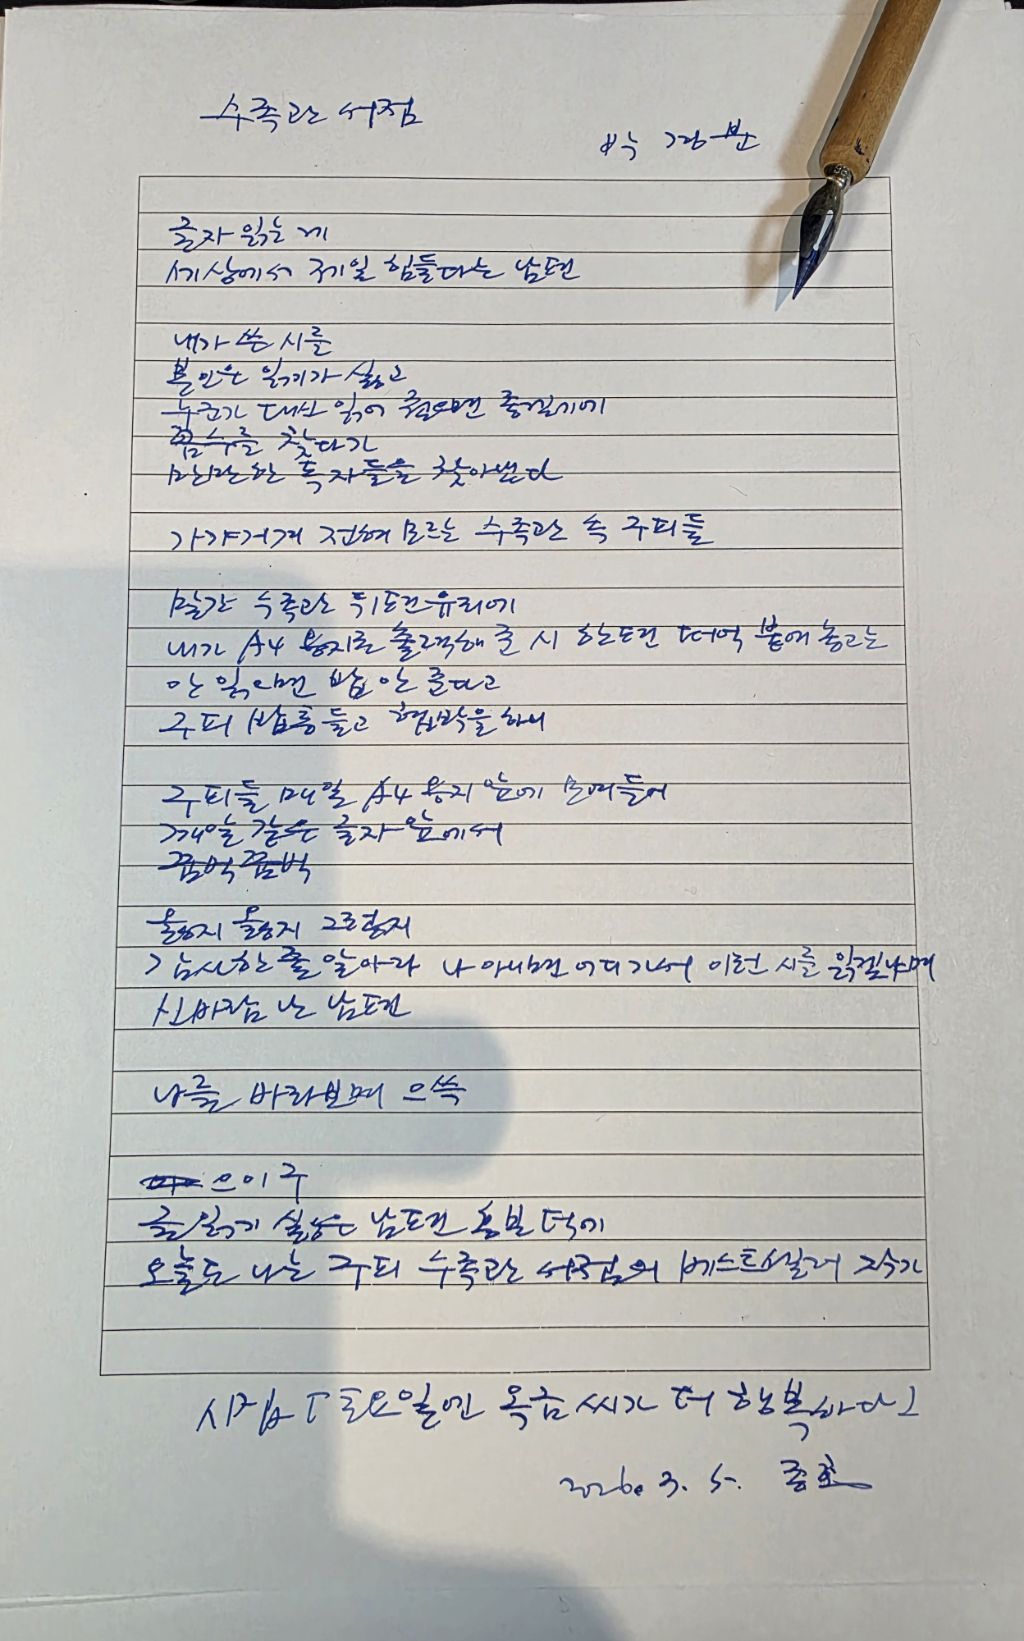 수족관 서점
박 경분
글자 읽는 게
세상에서 제일 힘들다는 남편
내가 쓴 시를
본인은 읽기가 싫고
누군가 대신 읽어 줬으면 좋겠기에
꼼수를 찾다가
만만한 독자들을 찾아냈다
가갸거겨 전혀 모르는 수족관 속 구피들
말간 수족관 뒤편 유리에
내가 A4 용지로 출력해 준 시 한 편 떠억 붙여 놓고는
안 읽으면 밥 안 준다고
구피 밥통 들고 협박을 하니
구피들 매일 A4 용지 앞에 모여들어
깨알 같은 글자 앞에서
끔벅끔벅
옳지 옳지 그렇지
감사한 줄 알아라 나 아니면 어디 가서 이런 시를 읽겠냐며
신바람 난 남편
나를 바라보며 으쓱
으이구
글 읽기 싫은 남편 홍보 덕에
오늘도 나는 구피 수족관 서점의 베스트셀러 작가
시집 「토요일엔 옥금 씨가 더 행복하다」
2026. 3. 5.